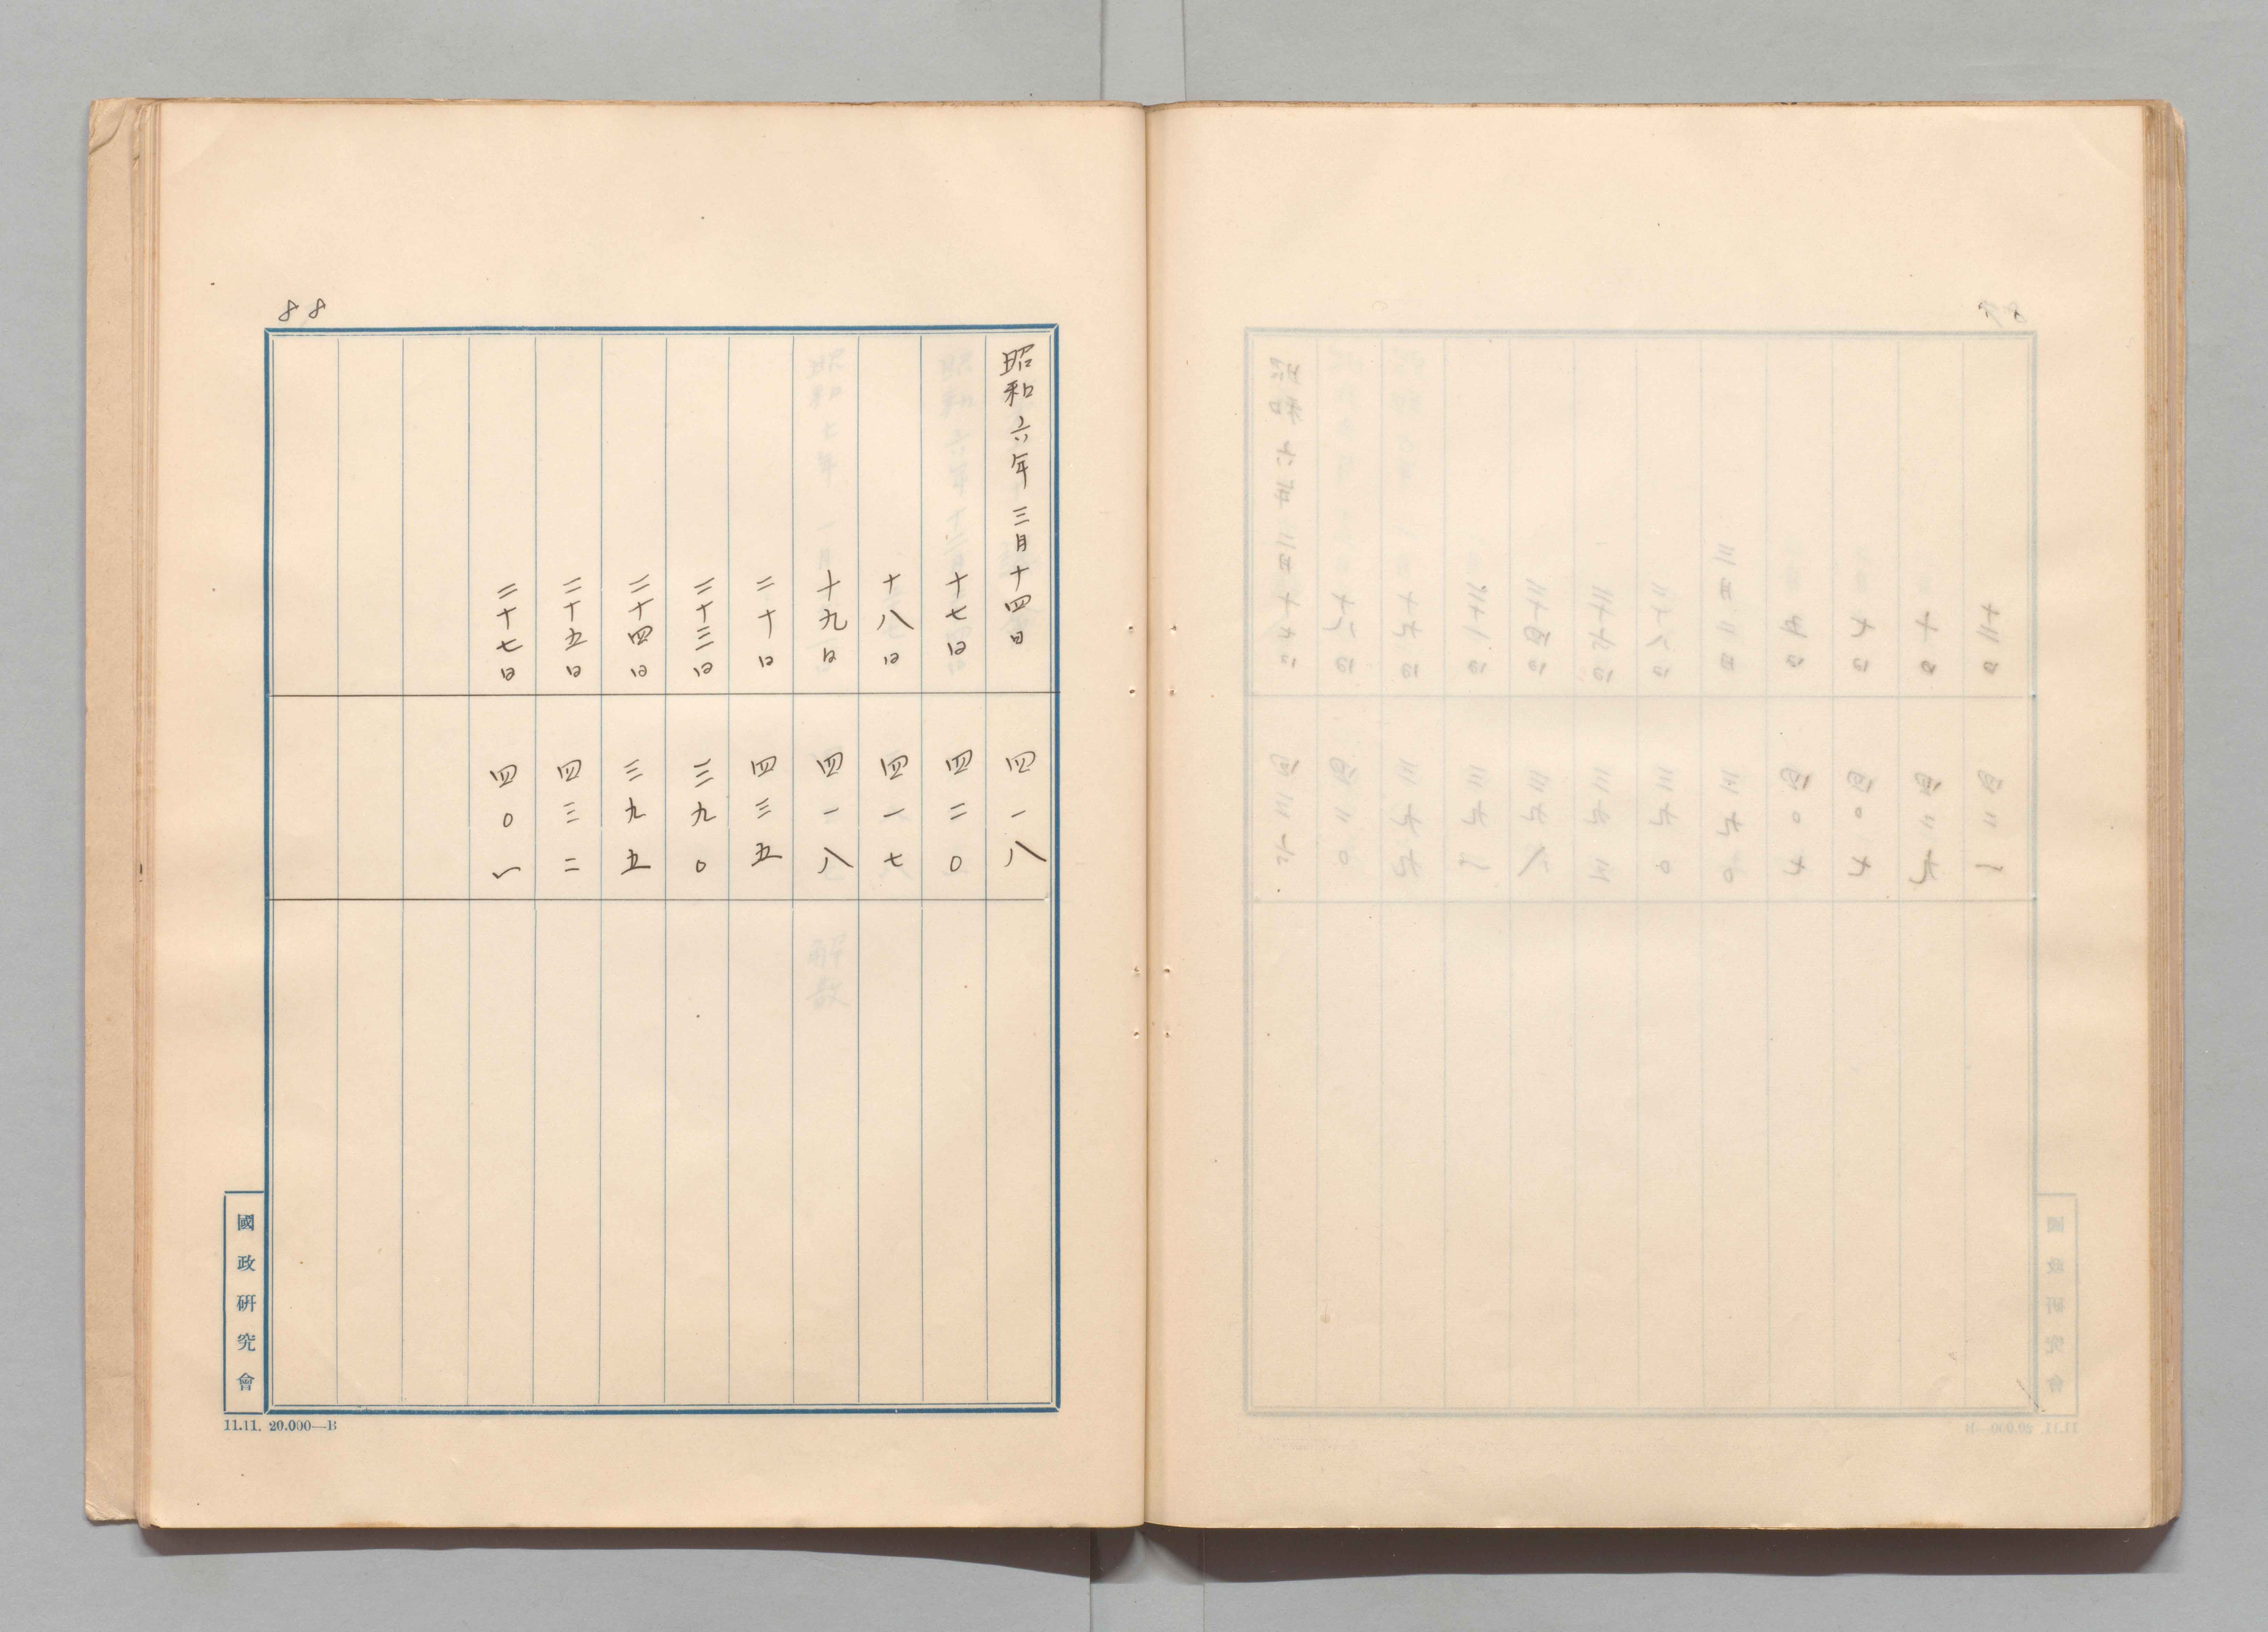 88
昭和六年三月十四日 四一八
十七日 四二〇
十八日 四一七
十九日 四一八
二十日 四三五
二十三日 三九〇
二十四日 三九五
二十五日 四三二
二十七日 四〇一
國政研究會
11.11. 20.000—B